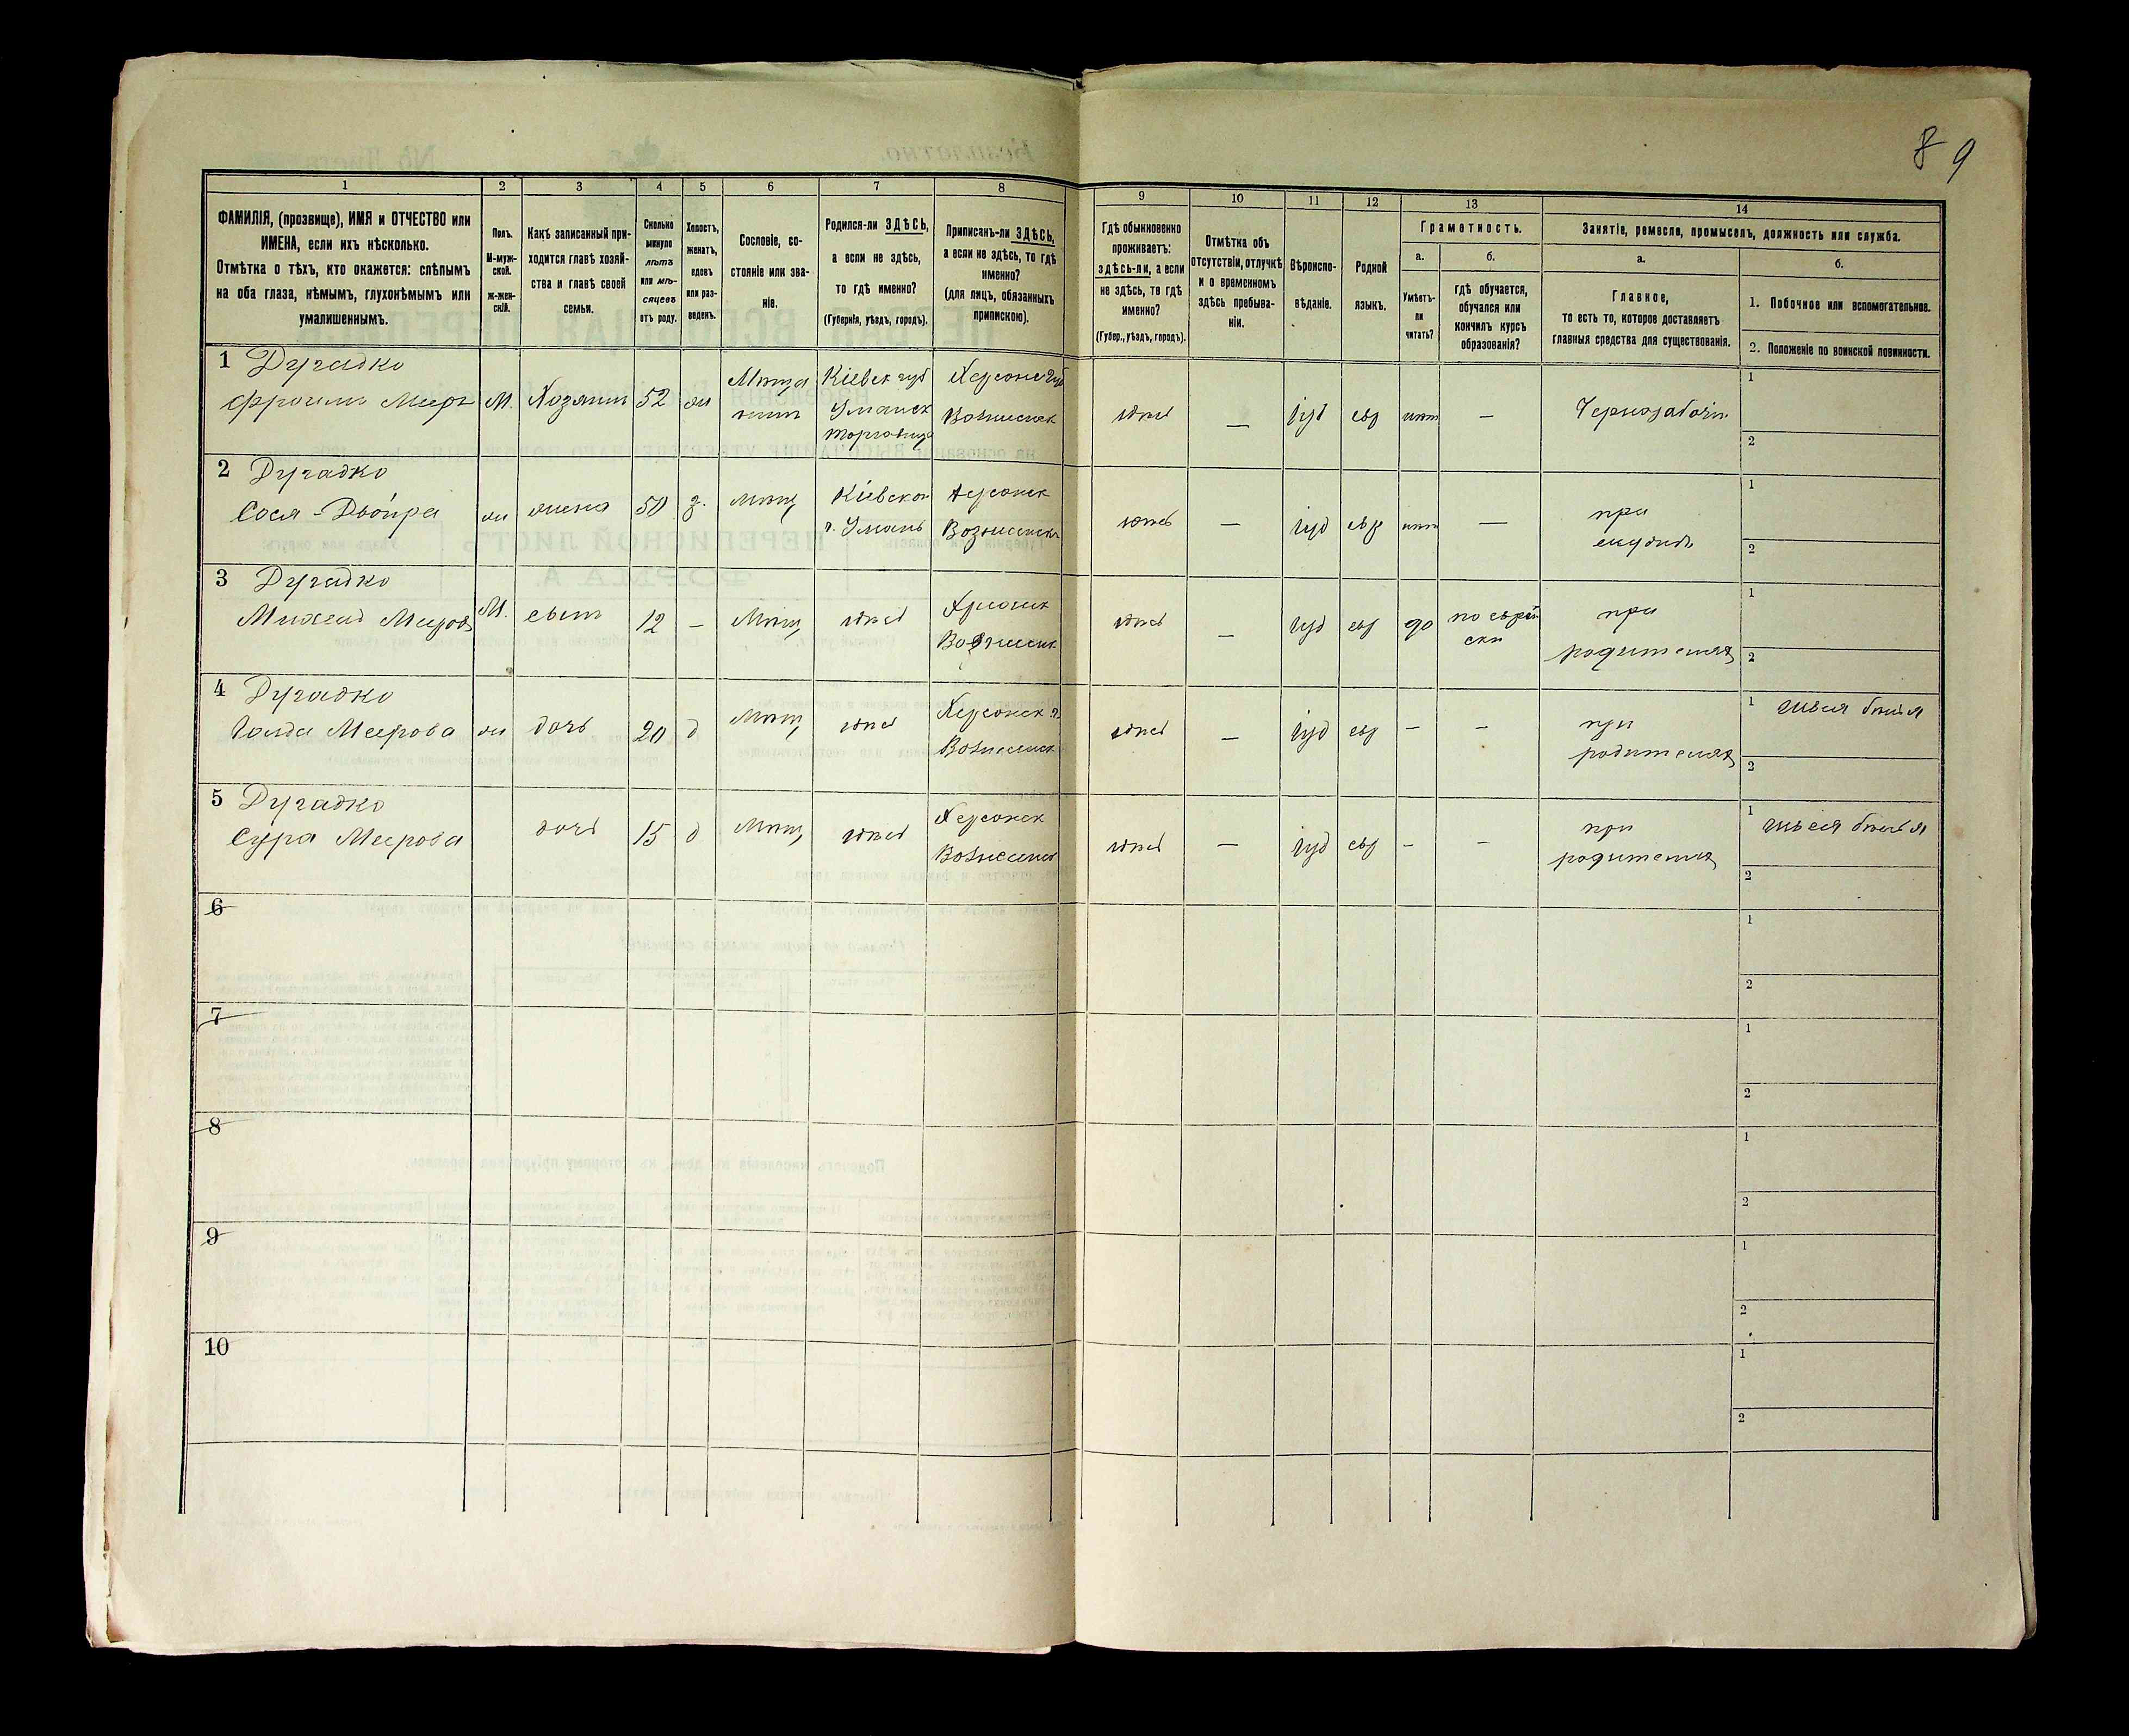 8 9
1 2 3 4 5 6 7 8 9 10 11 12 13 14
ФАМИЛІЯ, (прозвище), ИМЯ и ОТЧЕСТВО или
ИМЕНА, если ихъ нѣсколько.
Отмѣтка о тѣхъ, кто окажется: слѣпымъ
на оба глаза, нѣмымъ, глухонѣмымъ или
умалишеннымъ.
Полъ.
М-муж-
ской.
ж-жен-
скій.
Какъ записанный при-
ходится главѣ хозяй-
ства и главѣ своей
семьи.
Сколько
минуло
лѣтъ
или мѣ-
сяцевъ
отъ роду.
Холостъ,
женатъ,
вдовъ
или раз-
веденъ.
Сословіе, со-
стояніе или зва-
ніе.
Родился-ли ЗДѢСЬ,
а если не здѣсь,
то гдѣ именно?
(Губернія, уѣздъ, городъ).
Приписанъ-ли ЗДѢСЬ,
а если не здѣсь, то гдѣ
именно?
(для лицъ, обязанныхъ
припискою).
Гдѣ обыкновенно
проживаетъ:
здѣсь-ли, а если
не здѣсь, то гдѣ
именно?
(Губер., уѣздъ, городъ).
Отмѣтка объ
отсутствіи, отлучкѣ
и о временномъ
здѣсь пребыва-
ніи.
Вѣроиспо-
вѣданіе.
Родной
языкъ.
Грамотность.
а.
Умѣетъ-
ли
читать?
б.
гдѣ обучается,
обучался или
кончилъ курсъ
образованія?
Занятіе, ремесло, промыселъ, должность или служба.
а.
Главное,
то есть то, которое доставляетъ
главныя средства для существованія.
б.
1. Побочное или вспомогательное.
2. Положеніе по воинской повинности.
1 Дугадко
М. Хозяинъ 52 Кіевск губ
Уманск
здѣсь — іуд евр нѣтъ — Чернорабочій
1
2
2 Дугадко
Сося - Двойра жена 50 з. мѣщ Кіевской
г. Умань Вознесенск
здѣсь — іуд евр нѣтъ — при
1
2
3 Дугадко
М. сынъ 12 — Мѣщ здѣсь
здѣсь — іуд евр да по еврей
ски при
родителяхъ
1
2
4 Дугадко
Голда Меерова дочь 20 д Мѣщ здѣсь Херсонск г.
Вознесенск
здѣсь — іуд евр — — при
родителяхъ
1 швея бѣлья
2
5 Дугадко
Сура Меерова дочь 15 д Мѣщ здѣсь Херсонск
Вознесенск
здѣсь — іуд евр — — при
родителяхъ
1 швея бѣлья
2
6 1
2
7 1
2
8 1
2
9 1
2
10 1
2